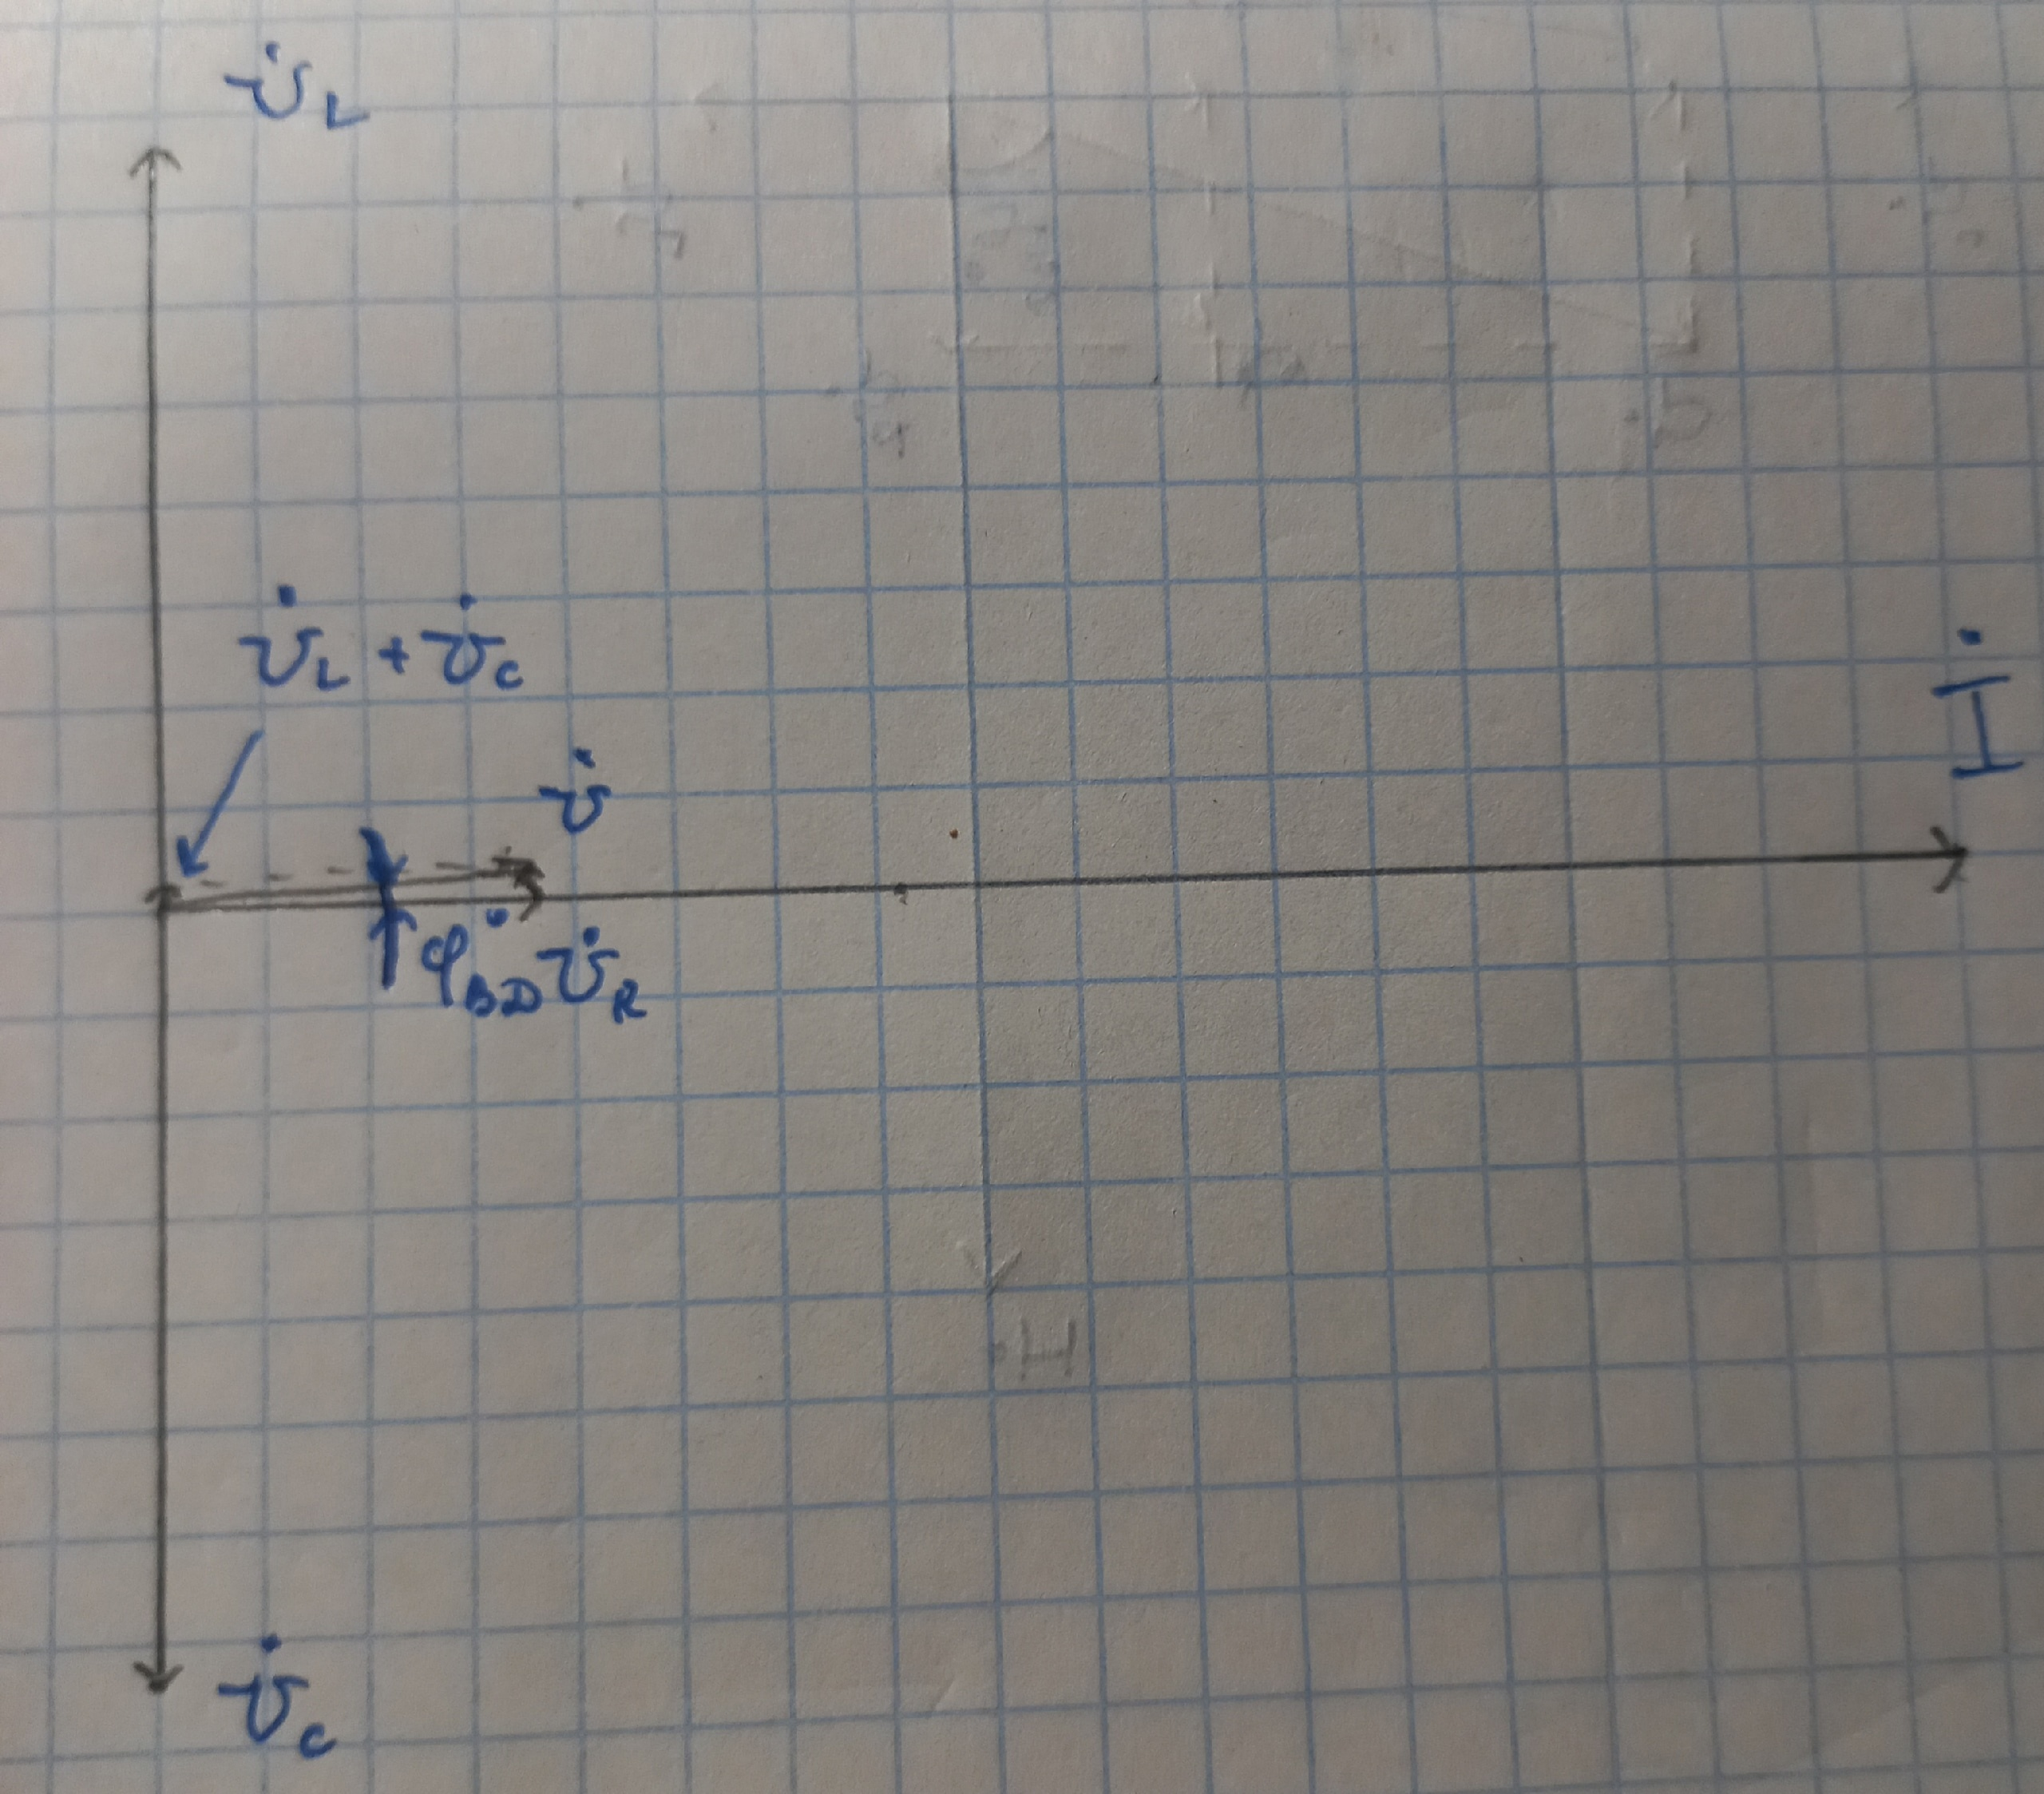 U̇_L
U̇_L + U̇_C
U̇
İ
φ_BD U̇_R
U̇_C